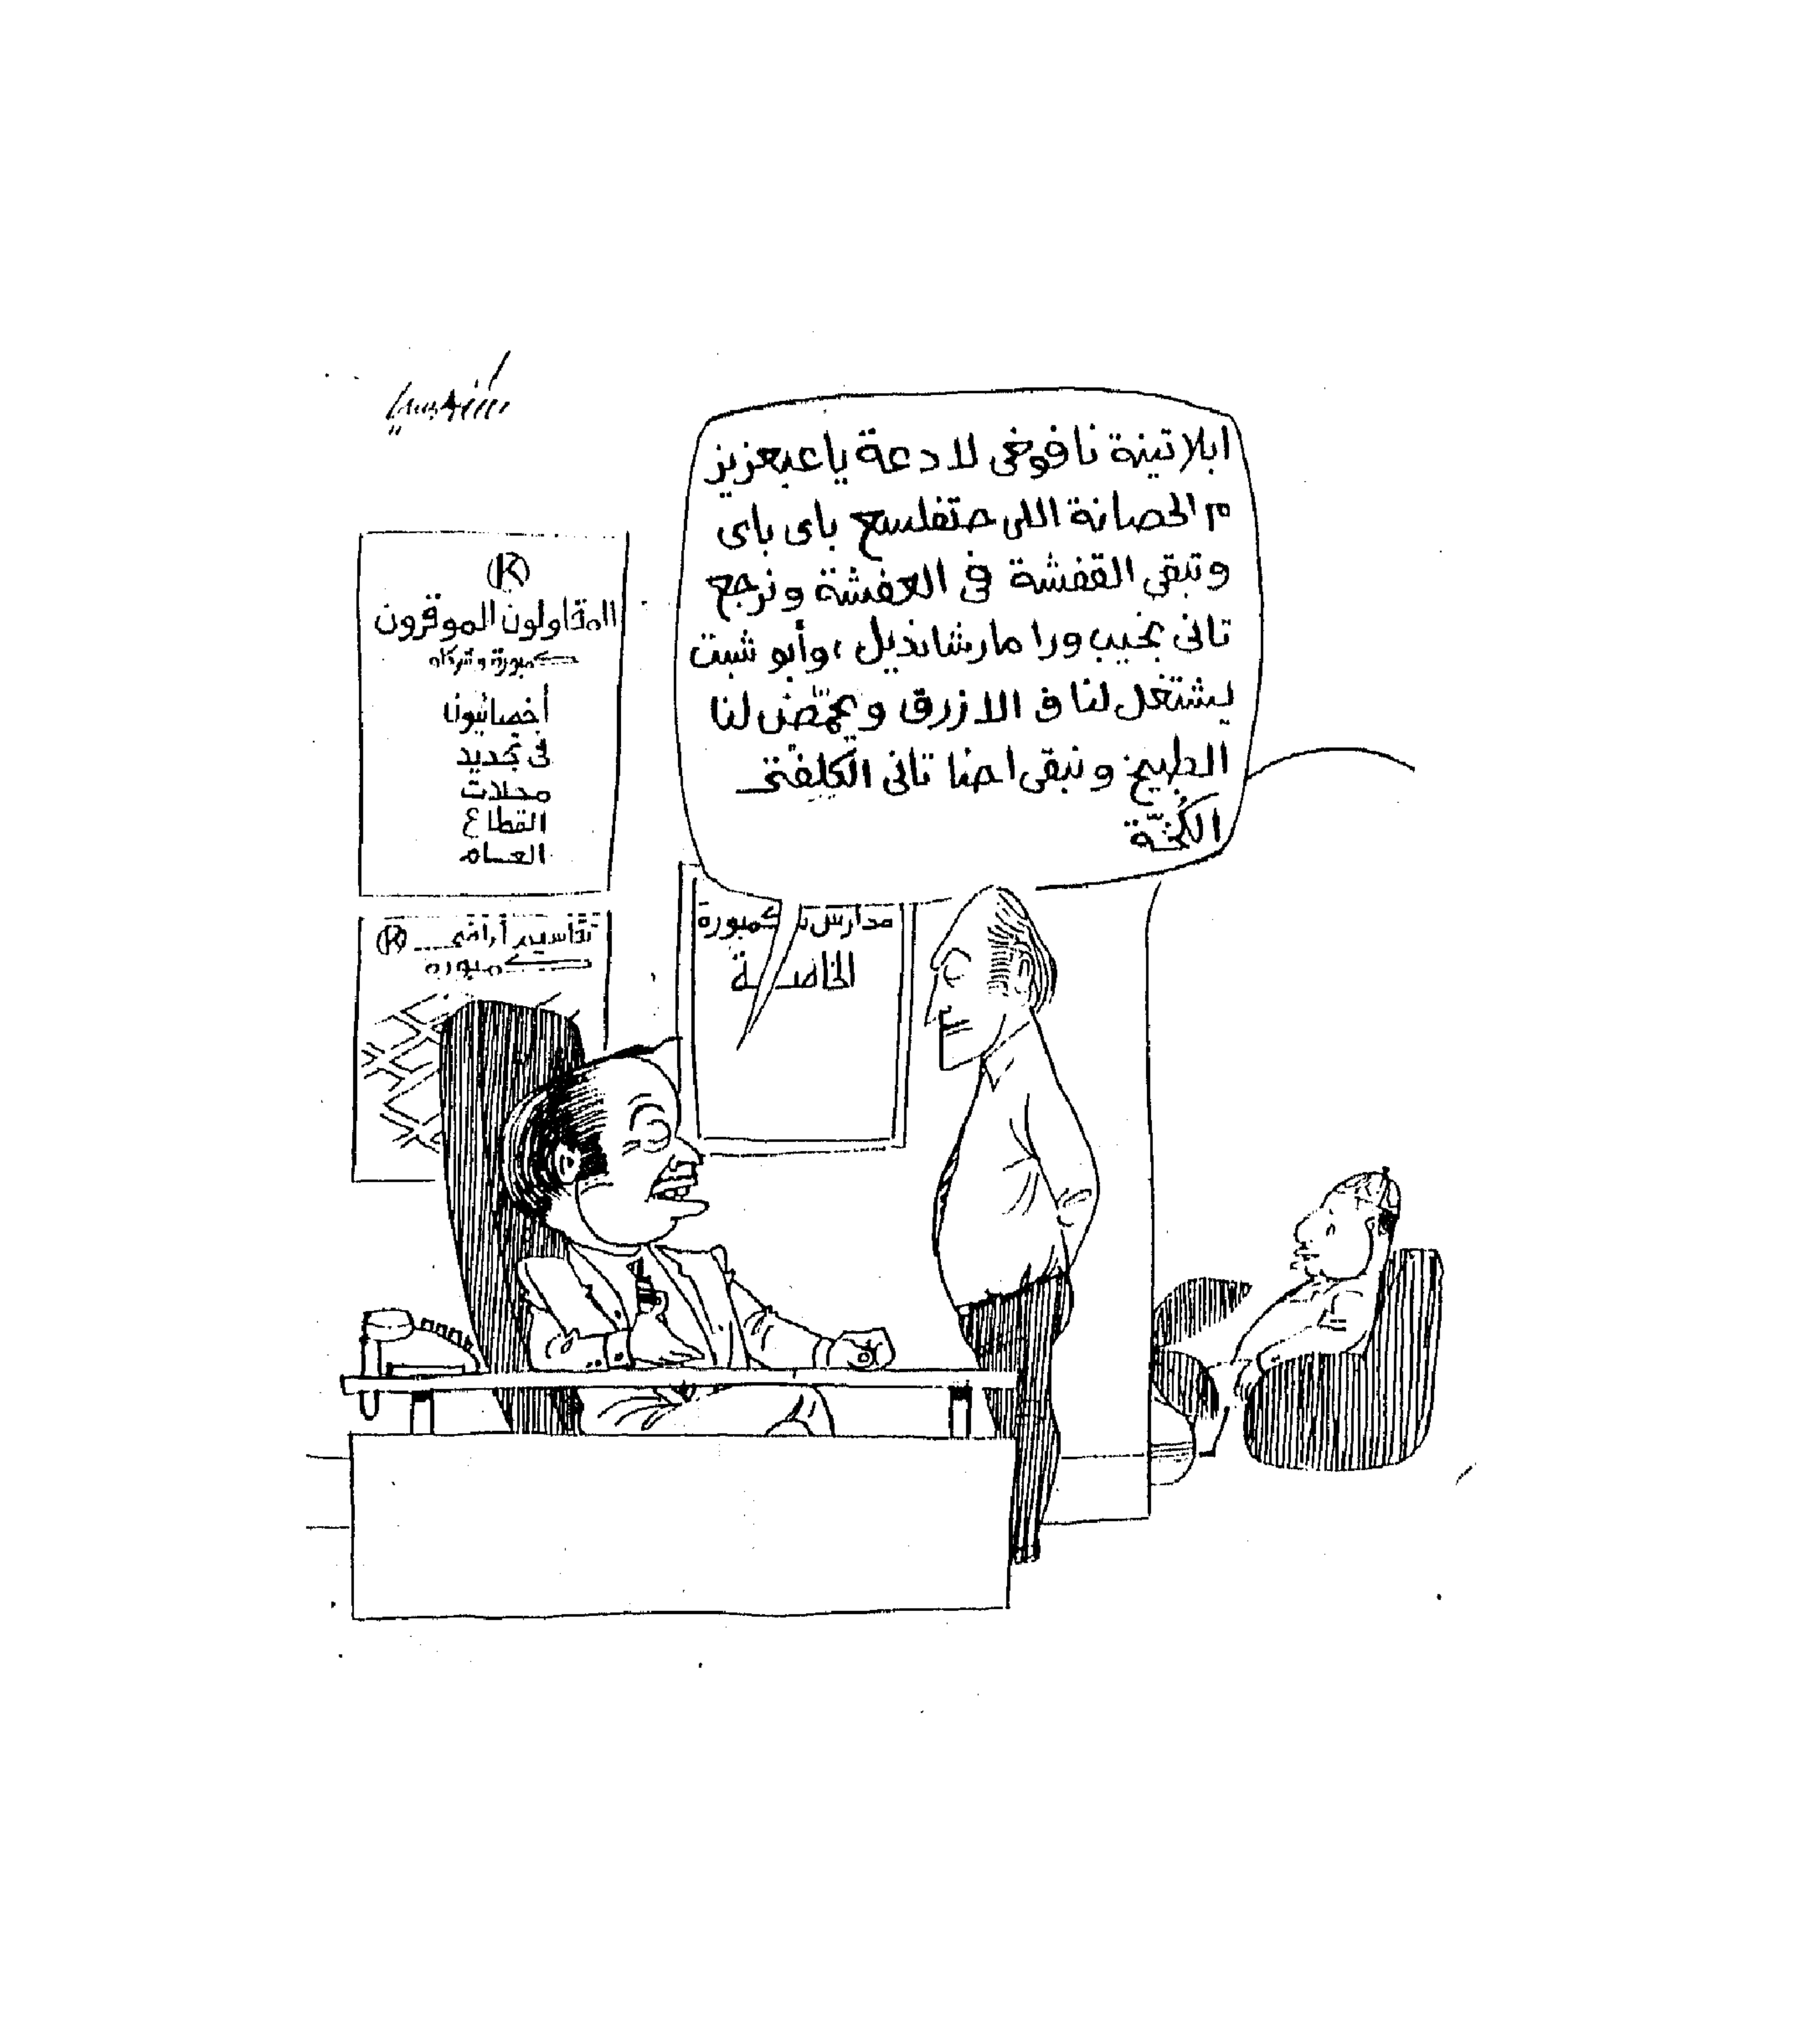 ابلاتينة نافوخى لادعة ياعبعزيز
م الحصانة اللى حتفلسع باى باى
وتبقى القفشة فى العفشة ونرجع
تانى نجيب ورا مارشانديل، وأبو شبت
يشتغل لنا ف الازرق ويحمّض لنا
الطبيخ ونبقى احنا تانى الكلفتى
الكُخّة
K
المقاولون الموقرون
كمبورة وشركاه
أخصائيون
فى تجديد
محلات
القطاع
العام
تقاسيم أراضى K
كمبورة
مدارس كمبورة
الخاصة